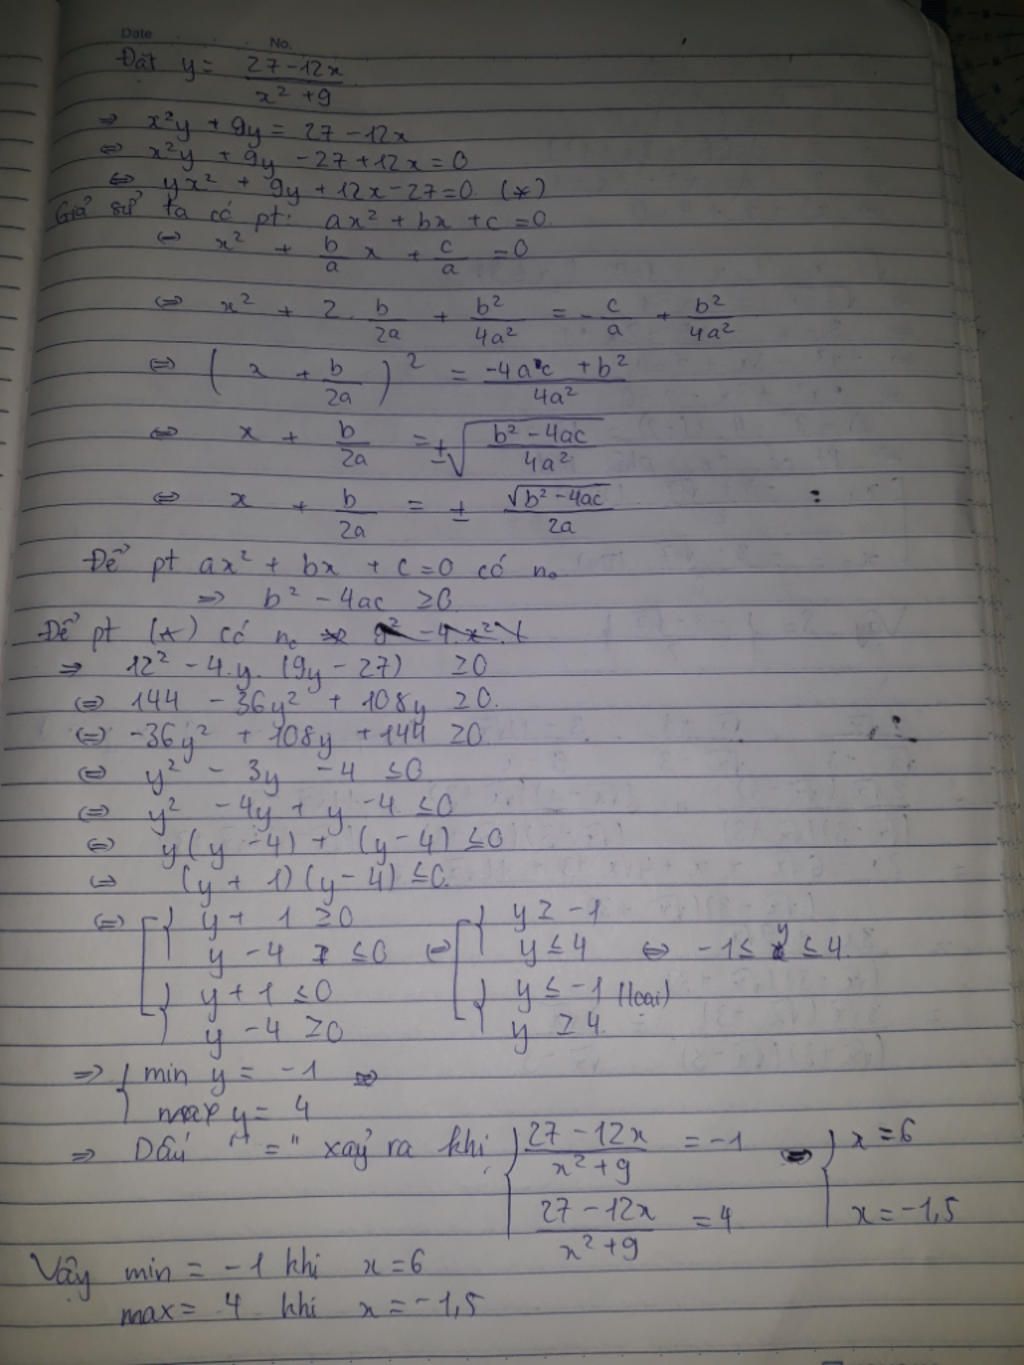 Date
No.
Đặt y = \frac{27-12x}{x² + 9}
⇒ x²y + 9y = 27 - 12x
⇔ x²y + 9y - 27 + 12x = 0
⇔ yx² + 9y + 12x - 27 = 0 (*)
Giả sử ta có pt: ax² + bx + c = 0
⇔ x² + \frac{b}{a} x + \frac{c}{a} = 0
⇔ x² + 2. \frac{b}{2a} + \frac{b²}{4a²} = -\frac{c}{a} + \frac{b²}{4a²}
⇔ ( x + \frac{b}{2a} )² = \frac{-4ac + b²}{4a²}
⇔ x + \frac{b}{2a} = ± \sqrt{\frac{b² - 4ac}{4a²}}
⇔ x + \frac{b}{2a} = ± \frac{\sqrt{b² - 4ac}}{2a}
Để pt ax² + bx + c = 0 có n₀
⇒ b² - 4ac ≥ 0
Để pt (*) có n₀
⇒ 12² - 4.y. (9y - 27) ≥ 0
⇔ 144 - 36y² + 108y ≥ 0.
⇔ -36y² + 108y + 144 ≥ 0
⇔ y² - 3y - 4 ≤ 0
⇔ y² - 4y + y - 4 ≤ 0
⇔ y(y - 4) + (y - 4) ≤ 0
⇔ (y + 1)(y - 4) ≤ 0.
⇔ [ { y + 1 ≥ 0 [ { y ≥ -1
y - 4 ≤ 0 ⇔ y ≤ 4 ⇔ -1 ≤ y ≤ 4.
{ y + 1 ≤ 0 { y ≤ -1 (loại)
y - 4 ≥ 0 y ≥ 4.
⇒ { min y = -1
max y = 4
⇒ Dấu "=" xảy ra khi { \frac{27 - 12x}{x² + 9} = -1 ⇔ { x = 6
\frac{27 - 12x}{x² + 9} = 4 x = -1,5
Vậy min = -1 khi x = 6
max = 4 khi x = -1,5